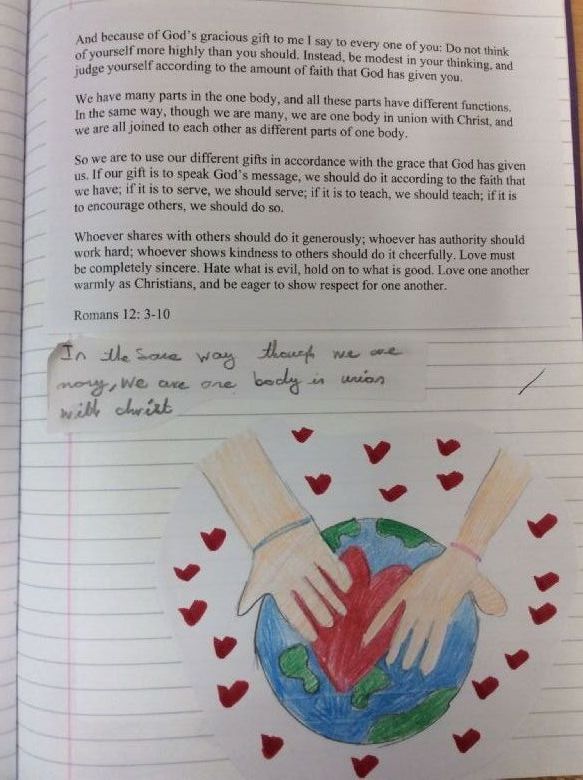 And because of God's gracious gift to me I say to every one of you: Do not think
of yourself more highly than you should. Instead, be modest in your thinking, and
judge yourself according to the amount of faith that God has given you.
We have many parts in the one body, and all these parts have different functions.
In the same way, though we are many, we are one body in union with Christ, and
we are all joined to each other as different parts of one body.
So we are to use our different gifts in accordance with the grace that God has given
us. If our gift is to speak God's message, we should do it according to the faith that
we have; if it is to serve, we should serve; if it is to teach, we should teach; if it is
to encourage others, we should do so.
Whoever shares with others should do it generously; whoever has authority should
work hard; whoever shows kindness to others should do it cheerfully. Love must
be completely sincere. Hate what is evil, hold on to what is good. Love one another
warmly as Christians, and be eager to show respect for one another.
Romans 12: 3-10
In the same way though we are
many, we are one body in union
with christ